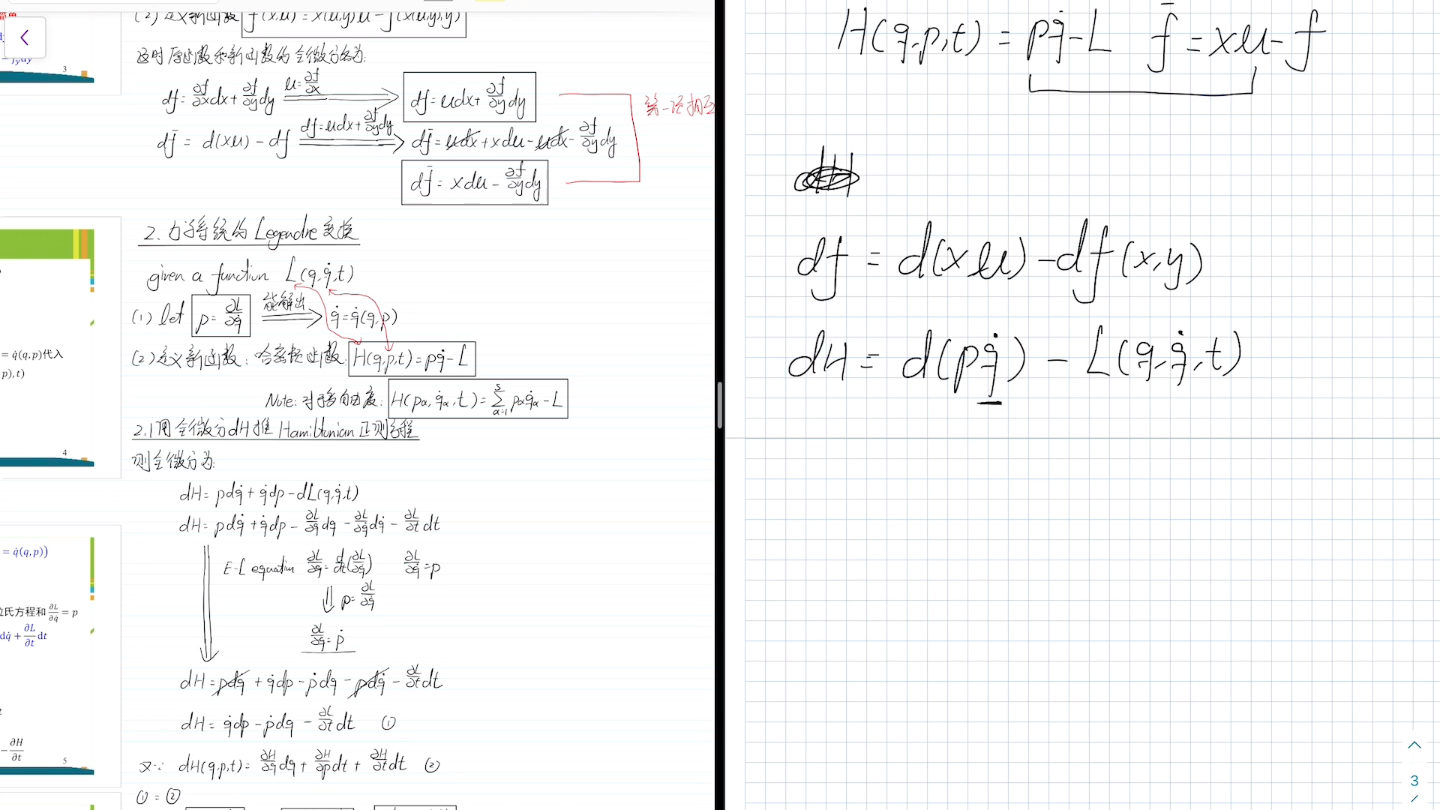 (2) 定义新函数 f̄(x,u) = x(u,y)u - f(x(u,y),y)
这时原函数和新函数的全微分为:
df = ∂f/∂x dx + ∂f/∂y dy ⟹ (u = ∂f/∂x) df = udx + ∂f/∂y dy
df̄ = d(xu) - df ⟹ (df = udx + ∂f/∂y dy) df̄ = udx + xdu - udx - ∂f/∂y dy
df̄ = xdu - ∂f/∂y dy
2. 力学系统的 Legendre 变换
given a function L(q,q̇,t)
(1) let p = ∂L/∂q̇ ⟹ (能解出) q̇ = q̇(q,p)
(2) 定义新函数: 哈密顿函数: H(q,p,t) = pq̇ - L
Note: 对于多自由度: H(pα,qα,t) = Σ(α=1→s) pαq̇α - L
2.1 用全微分dH推 Hamiltonian 正则方程
则全微分为:
dH = pdq̇ + q̇dp - dL(q,q̇,t)
dH = pdq̇ + q̇dp - ∂L/∂q dq - ∂L/∂q̇ dq̇ - ∂L/∂t dt
E-L equation ∂L/∂q = d/dt(∂L/∂q̇) ∂L/∂q̇ = p
⇓ p = ∂L/∂q̇
∂L/∂q = ṗ
dH = pdq̇ + q̇dp - ṗdq - pdq̇ - ∂L/∂t dt
dH = q̇dp - ṗdq - ∂L/∂t dt ①
又∵ dH(q,p,t) = ∂H/∂q dq + ∂H/∂p dt + ∂H/∂t dt ②
① = ②
3
= q̇(q,p)代入
p),t)
4
= q̇(q,p))
∂L/∂q̇ = p
dq̇ + ∂L/∂t dt
- ∂H/∂t
5
H(q,p,t) = pq̇ - L f̄ = xu - f
df = d(xu) - df(x,y)
dH = d(pq̇) - L(q,q̇,t)
3